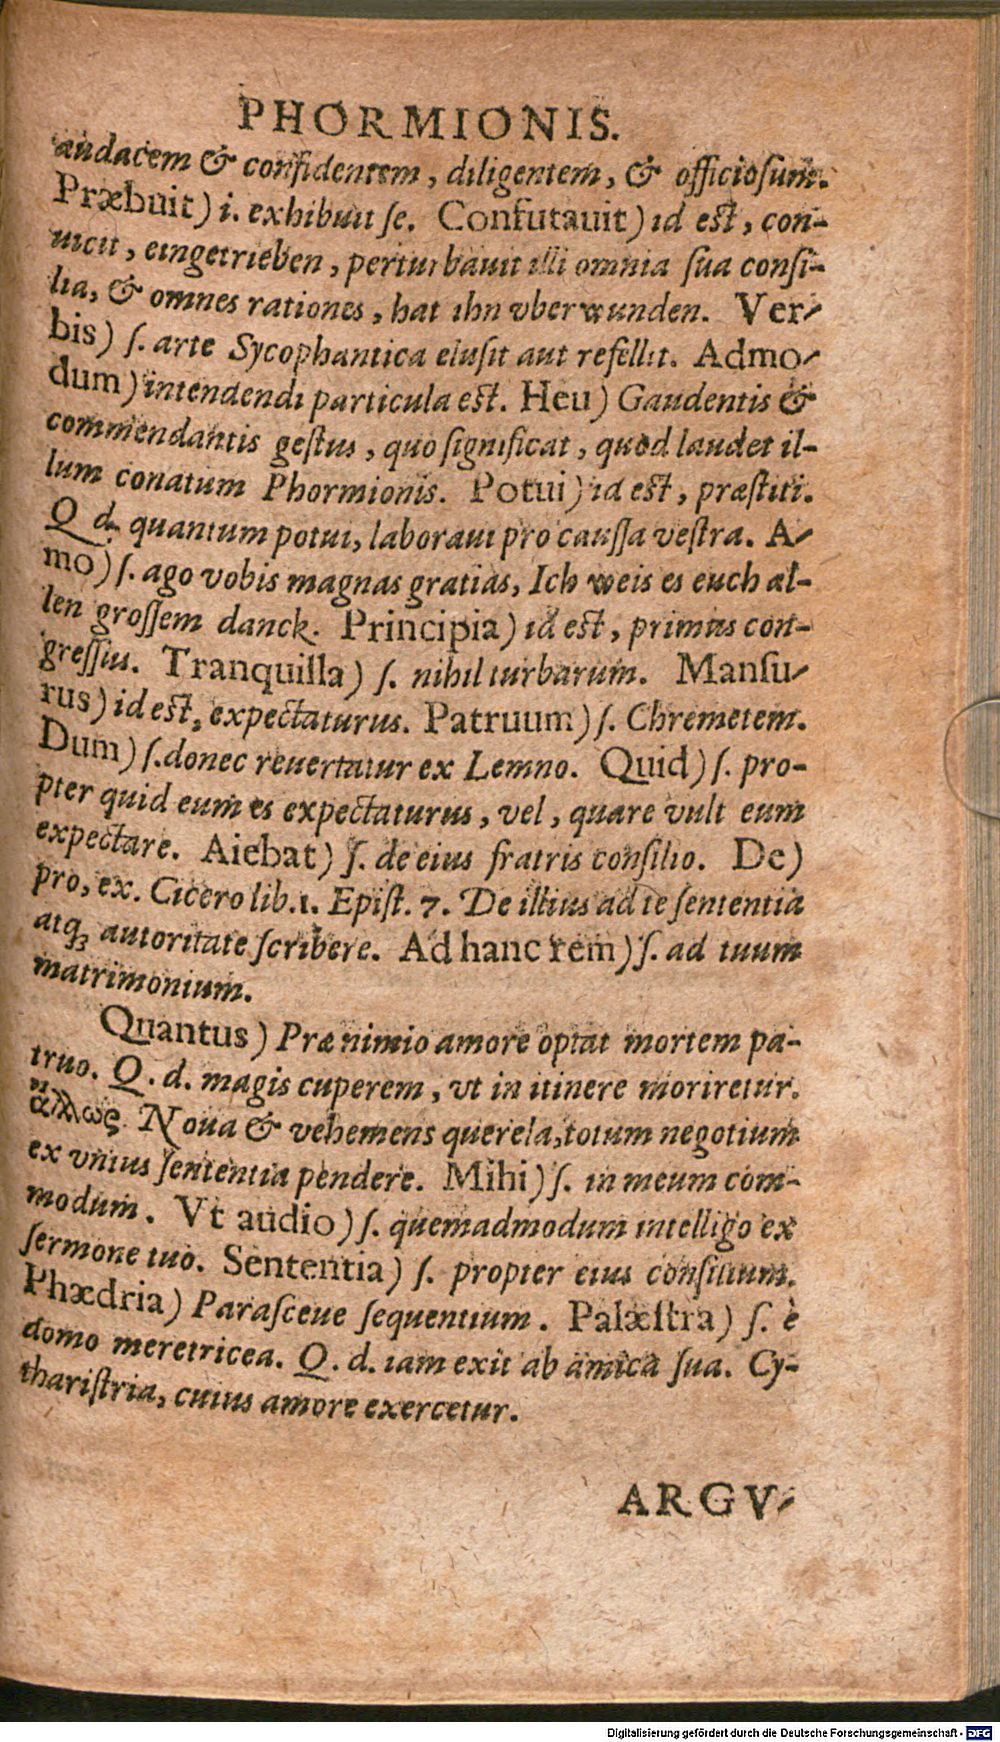 PHORMIONIS.
audacem & confidentem, diligentem, & officiosum.
Præbuit) i. exhibuit ſe. Confutauit) id eſt, con-
uicit, eingetrieben, perturbauit illi omnia ſua conſi-
lia, & omnes rationes, hat ihn vberwunden. Ver-
bis) ſ. arte Sycophantica eluſit aut refellit. Admo-
dum) intendendi particula eſt. Heu) Gaudentis &
commendantis geſtus, quo ſignificat, quod laudet il-
lum conatum Phormionis. Potui) id eſt, præſtiti.
Q d. quantum potui, laboraui pro cauſſa veſtra. A-
mo) ſ. ago vobis magnas gratias, Ich weis es euch al-
len groſſem danck. Principia) id eſt, primus con-
greſſus. Tranquilla) ſ. nihil turbarum. Manſu-
rus) id eſt, expectaturus. Patruum) ſ. Chremetem.
Dum) ſ. donec reuertatur ex Lemno. Quid) ſ. pro-
pter quid eum es expectaturus, vel, quare vult eum
expectare. Aiebat) ſ. de eius fratris conſilio. De)
pro, ex. Cicero lib. 1. Epiſt. 7. De illius ad te ſententia
atq; autoritate ſcribere. Ad hanc rem) ſ. ad tuum
matrimonium.
Quantus) Præ nimio amore optat mortem pa-
truo. Q. d. magis cuperem, vt in itinere moriretur.
ἄλλως Noua & vehemens querela, totum negotium
ex vnius ſententia pendere. Mihi) ſ. in meum com-
modum. Vt audio) ſ. quemadmodum intelligo ex
ſermone tuo. Sententia) ſ. propter eius conſilium.
Phædria) Paraſceue ſequentium. Palæſtra) ſ. è
domo meretricea. Q. d. iam exit ab amica ſua. Cy-
thariſtria, cuius amore exercetur.
ARGV-
Digitalisierung gefördert durch die Deutsche Forschungsgemeinschaft - DFG